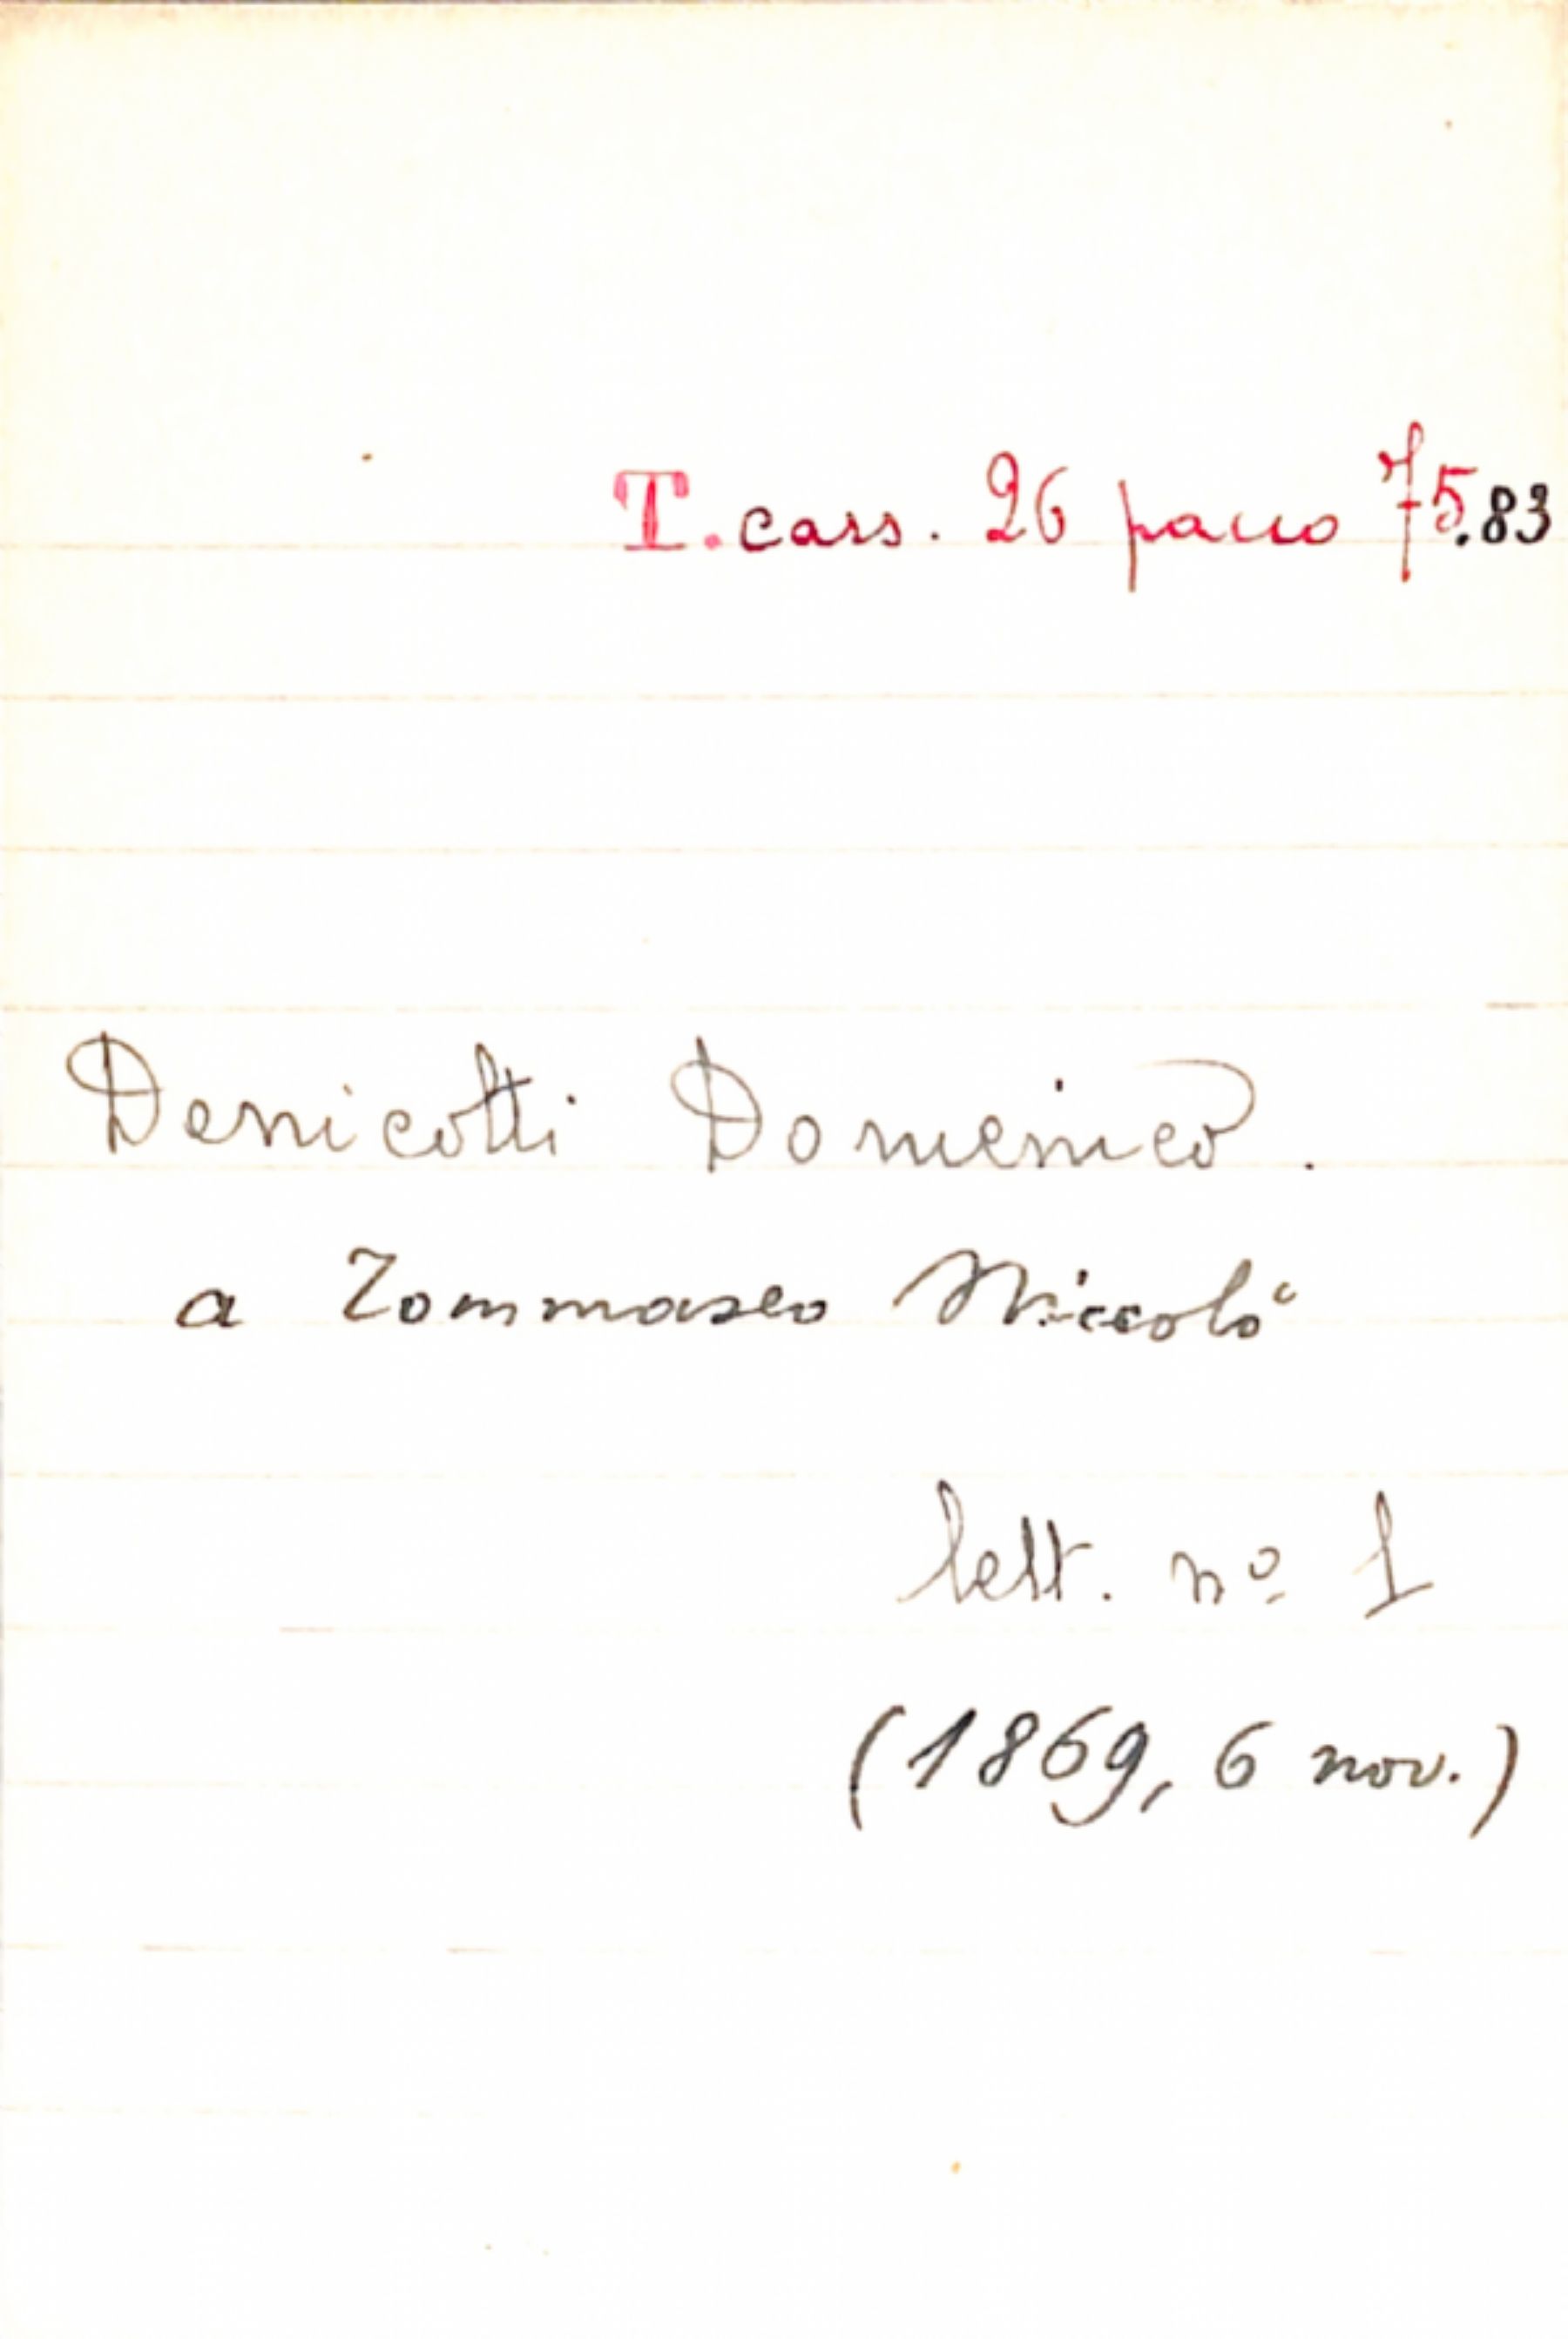 T. cass. 26 pacco 75.83
Denicotti Domenico.
a Tommaseo Niccolò
lett. nº 1
(1869, 6 nov.)